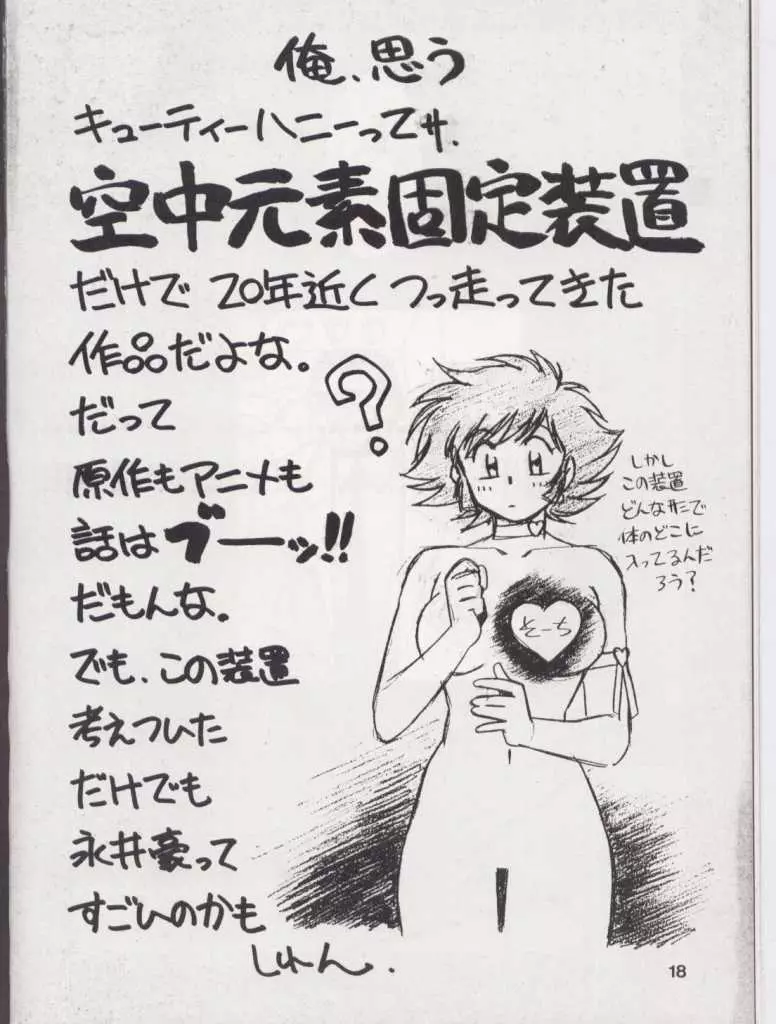 俺、思う
キューティーハニーってサ、
空中元素固定装置
だけで 20年近く つっ走ってきた
作品だよな。
?
だって
原作もアニメも
話はブーッ!!
だもんな。
でも、この装置
考えついた
だけでも
永井豪って
すごいのかも
しれーん、
しかし
この装置
どんな形で
体のどこに
入ってるんだ
ろう?
そーち
18